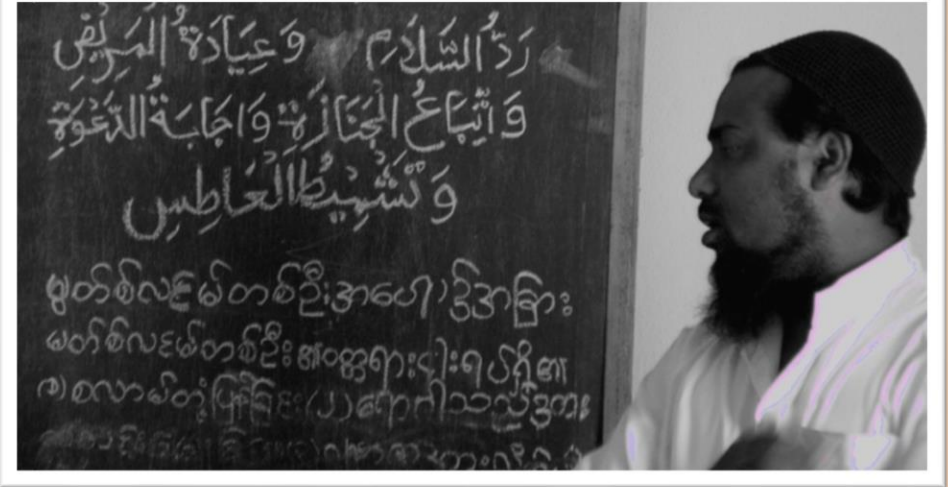 رَدُّ السَّلَامِ وَعِيَادَةُ الْمَرِيْضِ
وَاتِّبَاعُ الْجَنَازَةِ وَاِجَابَةُ الدَّعْوَةِ
وَتَشْمِيْتُ الْعَاطِسِ
မွတ်စ်လင်မ်တစ်ဦးအပေါ်၌အခြား
မတ်စ်လင်မ်တစ်ဦး၏ဝတ္တရားငါးရပ်ရှိ၏
(၁) စလာမ်တုံ့ပြန်ခြင်း (၂) ရောဂါသည်အား